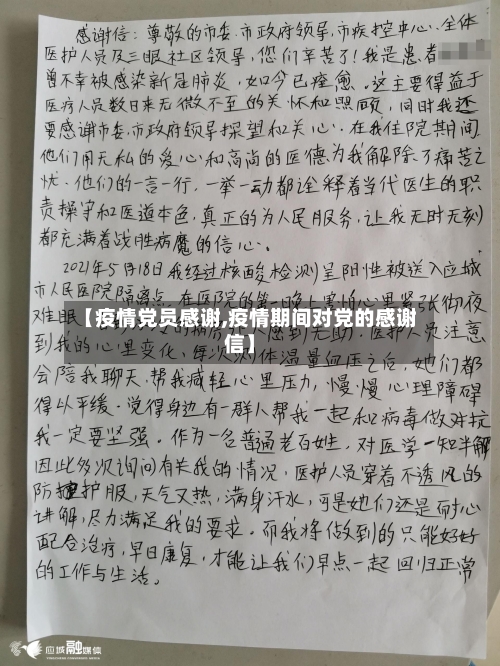 感谢信：尊敬的市委.市政府领导,市疾控中心.全体
医护人员及三眼社区领导,您们辛苦了!我是患者
曾不幸被感染新冠肺炎,如今已痊愈.这主要得益于
医疗人员数日来无微不至的关怀和照顾,同时我还
要感谢市委.市政府领导探望和关心.在我住院期间
他们用无私的爱心和高尚的医德为我解除了痛苦之
忧.他们的一言一行,一举一动都诠释着当代医生的职
责操守和医道本色,真正的为人民服务,让我无时无刻
都充满着战胜病魔的信心。
2021年5月18日我经过核酸检测呈阳性被送入应城
市人民医院隔离点.在医院的第一晚上害怕心里紧张彻夜
难眠
【疫情党员感谢,疫情期间对党的感谢
信】
感到无助.医护人员注意
到我的心里变化,每次测体温量血压之后,她们都
会陪我聊天.帮我减轻心里压力,慢慢心理障碍
得以平缓.觉得身边有一群人帮我一起和病毒做对抗
我一定要坚强.作为一名普通老百姓,对医学一知半解
因此多次询问有关我的情况,医护人员穿着不透风的
防护服,天气又热,满身汗水,可是她们还是耐心
讲解,尽力满足我的要求.而我将做到的只能好好
配合治疗,早日康复,才能让我们早点一起回归正常
的工作与生活。
应城融媒体